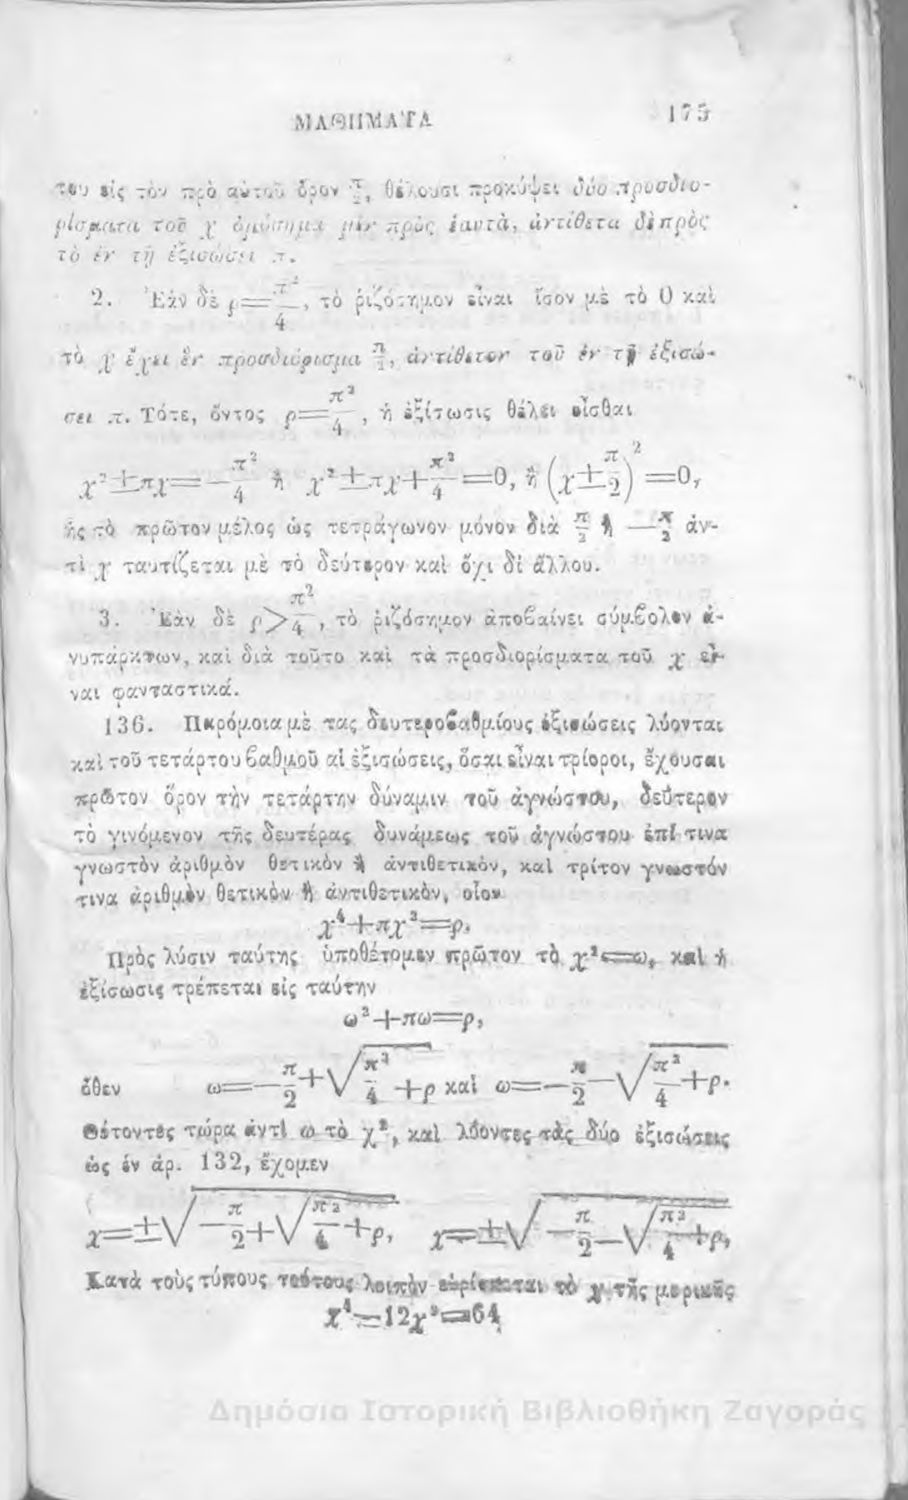 ΜΑΘΗΜΑΤΑ 175
του εἰς τὸν πρὸ αὐτοῦ ὅρον π/2, θέλουσι προκύψει δύο προσδιο-
ρίσματα τοῦ χ ὁμόσημα μὲν πρὸς ἑαυτὰ, ἀντίθετα δὲ πρὸς
τὸ ἐν τῇ ἐξισώσει π.
2. Ἐὰν δὲ ρ=π²/4, τὸ ῥιζόσημον εἶναι ἴσον μὲ τὸ 0 καὶ
τὸ χ ἔχει ἓν προσδιόρισμα π/2, ἀντίθετον τοῦ ἐν τῇ ἐξισώ-
σει π. Τότε, ὄντος ρ=π²/4, ἡ ἐξίσωσις θέλει εἶσθαι
χ²±πχ=—π²/4 ἢ χ²±πχ+π²/4=0, ἢ (χ±π/2)²=0,
ἧς τὸ πρῶτον μέλος ὡς τετράγωνον μόνον διὰ π/2 ἢ —π/2 ἀν-
τὶ χ ταυτίζεται μὲ τὸ δεύτερον καὶ ὄχι δἰ ἄλλου.
3. Ἐὰν δὲ ρ>π²/4, τὸ ῥιζόσημον ἀποβαίνει σύμβολον ἀ-
νυπάρκτων, καὶ διὰ τοῦτο καὶ τὰ προσδιορίσματα τοῦ χ εἶ-
ναι φανταστικά.
136. Παρόμοια μὲ τας δευτεροβαθμίους ἐξισώσεις λύονται
καὶ τοῦ τετάρτου βαθμοῦ αἱ ἐξισώσεις, ὅσαι εἶναι τρίοροι, ἔχουσαι
πρῶτον ὅρον τὴν τετάρτην δύναμιν τοῦ ἀγνώστου, δεύτερον
τὸ γινόμενον τῆς δευτέρας δυνάμεως τοῦ ἀγνώστου ἐπί τινα
γνωστὸν ἀριθμὸν θετικὸν ἢ ἀντιθετικὸν, καὶ τρίτον γνωστόν
τινα ἀριθμὸν θετικὸν ἢ ἀντιθετικὸν, οἷον
χ⁴+πχ²=ρ.
Πρὸς λύσιν ταύτης ὑποθέτομεν πρῶτον τὸ χ²=ω, καὶ ἡ
ἐξίσωσις τρέπεται εἰς ταύτην
ω²+πω=ρ,
ὅθεν ω=—π/2+√π²/4+ρ καὶ ω=—π/2—√π²/4+ρ.
Θέτοντες τώρα ἀντὶ ω τὸ χ², καὶ λύοντες τὰς δύο ἐξισώσεις
ὡς ἐν ἀρ. 132, ἔχομεν
χ=±√—π/2+√π²/4+ρ, χ=±√—π/2—√π²/4+ρ,
Κατὰ τοὺς τύπους τούτους λοιπὸν εὑρίσκεται τὸ χ τῆς μερικῆς
χ⁴—12χ²=64
Δημόσια Ιστορική Βιβλιοθήκη Ζαγοράς